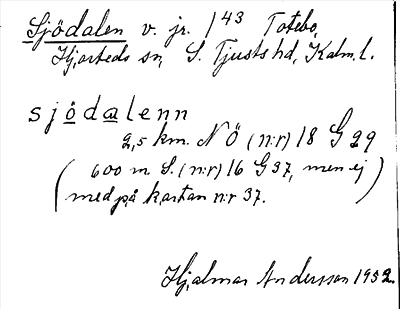 Sjödalen v. jr. 143 Totebo,
Hjorteds sn, S. Tjusts hd, Kalm. l.
sjödalenn
2,5 km. NÖ (n:r) 18 G 29
(600 m. S. (n:r) 16 G 37, men ej
med på kartan n:r 37.)
Hjalmar Andersson 1932.